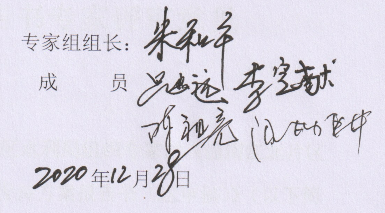 专家组组长：朱和平
成员 吕志远 李宝献
陈祖亮
2020年12月28日